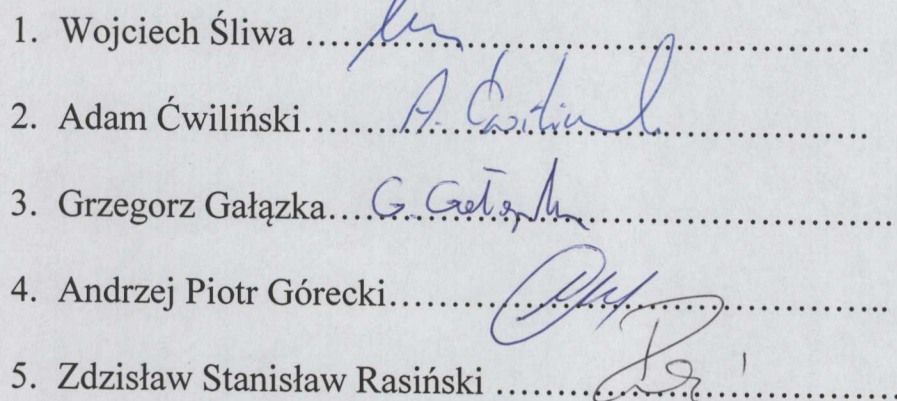 1. Wojciech Śliwa ..........................................................
2. Adam Ćwiliński.......A. Ćwiliń.......................................
3. Grzegorz Gałązka....G. Gałązka.....................................
4. Andrzej Piotr Górecki.....................................................
5. Zdzisław Stanisław Rasiński ............................................